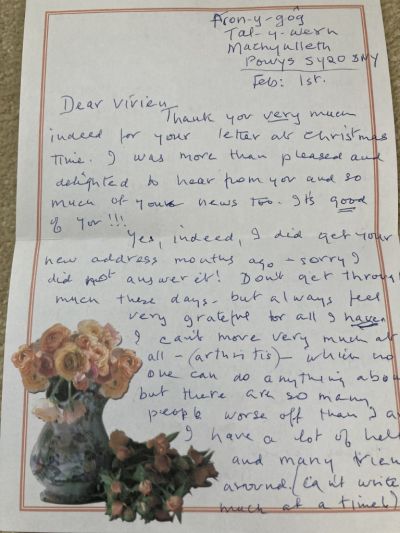 Fron-y-gôg
Tal-y-wern
Machynlleth
Powys SY20 8NY
Feb: 1st.
Dear Vivien,
Thank you very much
indeed for your letter at Christmas
time. I was more than pleased and
delighted to hear from you and so
much of your news too. It's good
of you!!!
Yes, indeed, I did get your
new address months ago - sorry I
did not answer it! Don't get through
much these days - but always feel
very grateful for all I have.
I can't move very much at
all - (arthritis) - which no
one can do anything about
but there are so many
people worse off than I am
I have a lot of help
and many friends
around. (Can't write
much at a time!)